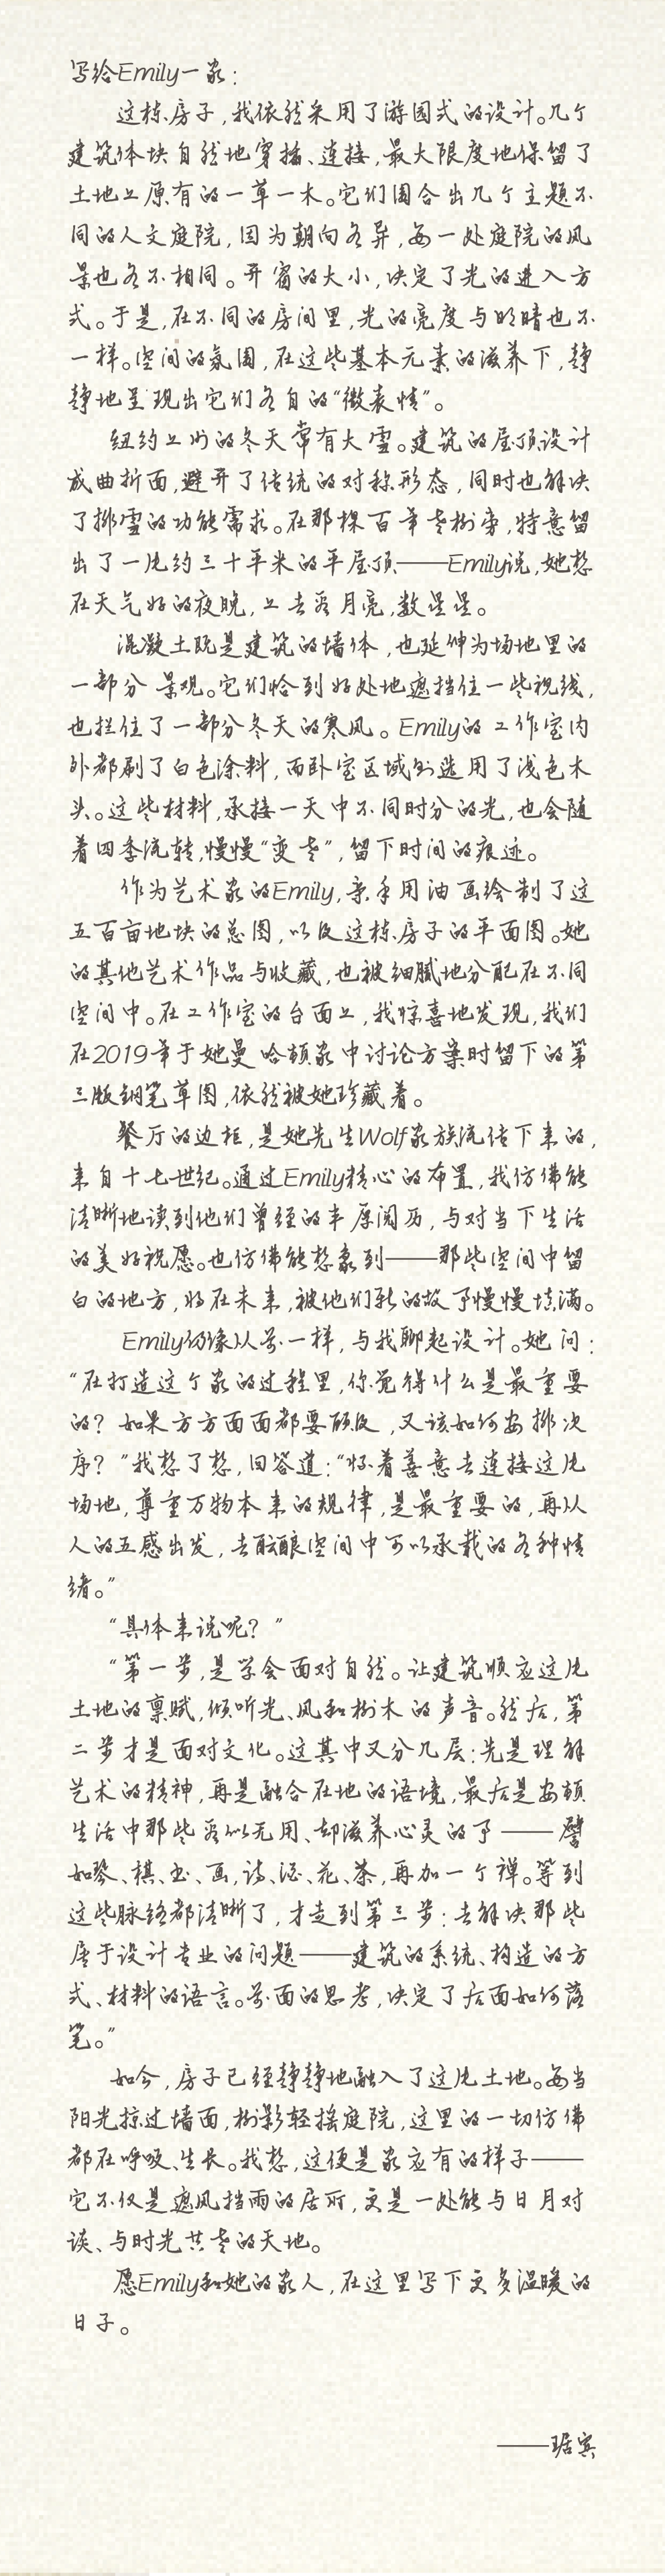 写给Emily一家：
这栋房子，我依然采用了游园式的设计。几个
建筑体块自然地穿插、连接，最大限度地保留了
土地上原有的一草一木。它们围合出几个主题不
同的人文庭院，因为朝向各异，每一处庭院的风
景也各不相同。开窗的大小，决定了光的进入方
式。于是，在不同的房间里，光的亮度与明暗也不
一样。空间的氛围，在这些基本元素的滋养下，静
静地呈现出它们各自的“微表情”。
纽约上州的冬天常有大雪。建筑的屋顶设计
成曲折面，避开了传统的对称形态，同时也解决
了排雪的功能需求。在那棵百年老树旁，特意留
出了一片约三十平米的平屋顶——Emily说，她想
在天气好的夜晚，上去看月亮，数星星。
混凝土既是建筑的墙体，也延伸为场地里的
一部分景观。它们恰到好处地遮挡住一些视线，
也拦住了一部分冬天的寒风。Emily的工作室内
外都刷了白色涂料，而卧室区域则选用了浅色木
头。这些材料，承接一天中不同时分的光，也会随
着四季流转，慢慢“变老”，留下时间的痕迹。
作为艺术家的Emily，亲手用油画绘制了这
五百亩地块的总图，以及这栋房子的平面图。她
的其他艺术作品与收藏，也被细腻地分配在不同
空间中。在工作室的台面上，我惊喜地发现，我们
在2019年于她曼哈顿家中讨论方案时留下的第
三版钢笔草图，依然被她珍藏着。
餐厅的边柜，是她先生Wolf家族流传下来的，
来自十七世纪。通过Emily精心的布置，我仿佛能
清晰地读到他们曾经的丰厚阅历，与对当下生活
的美好祝愿。也仿佛能想象到——那些空间中留
白的地方，将在未来，被他们新的故事慢慢填满。
Emily仍像从前一样，与我聊起设计。她问：
“在打造这个家的过程里，你觉得什么是最重要
的？如果方方面面都要顾及，又该如何安排次
序？”我想了想，回答道：“怀着善意去连接这片
场地，尊重万物本来的规律，是最重要的，再从
人的五感出发，去酝酿空间中可以承载的各种情
绪。”
“具体来说呢？”
“第一步，是学会面对自然。让建筑顺应这片
土地的禀赋，倾听光、风和树木的声音。然后，第
二步才是面对文化。这其中又分几层：先是理解
艺术的精神，再是融合在地的语境，最后是安顿
生活中那些看似无用、却滋养心灵的事——譬
如琴、棋、书、画，诗、酒、花、茶，再加一个禅。等到
这些脉络都清晰了，才走到第三步：去解决那些
属于设计专业的问题——建筑的系统、构造的方
式、材料的语言。前面的思考，决定了后面如何落
笔。”
如今，房子已经静静地融入了这片土地。每当
阳光掠过墙面，树影轻摇庭院，这里的一切仿佛
都在呼吸、生长。我想，这便是家应有的样子——
它不仅是遮风挡雨的居所，更是一处能与日月对
谈、与时光共老的天地。
愿Emily和她的家人，在这里写下更多温暖的
日子。
——琚宾